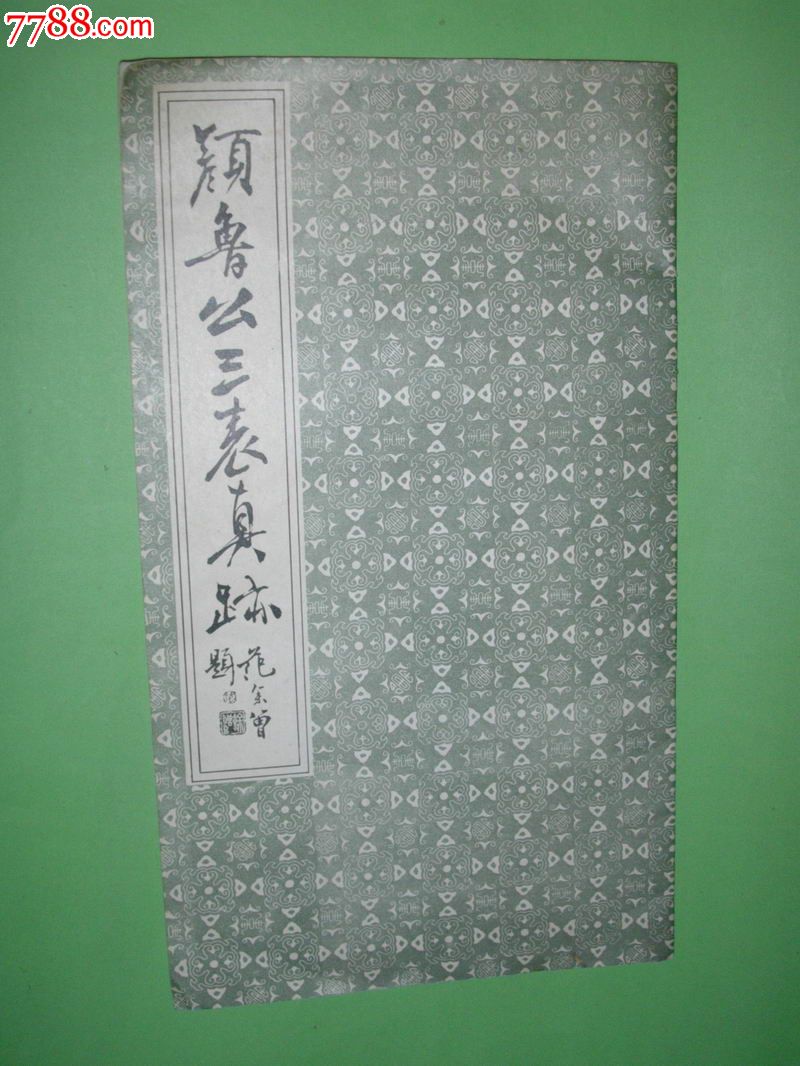 7788.com
颜鲁公三表真跡
范余曾
題